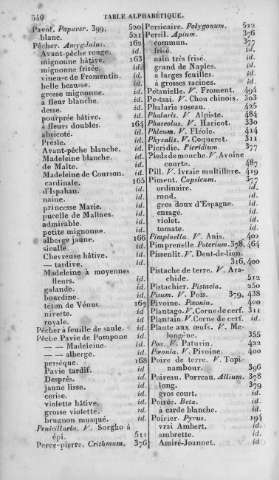 540 TABLE ALPHABÉTIQUE.
Pavot. Papaver. 399, 520
blanc. 521
Pêcher. Amygdalus. 162
Avant-pêche rouge. id.
mignonne hâtive. 163
mignonne frisée. id.
vineuse de Fromentin. id.
belle beausse. id.
grosse mignonne. id.
à fleur blanche. id.
desse. id.
pourprée hâtive. id.
à fleurs doubles. 164
abricoté. id.
Présle. id.
Avant-pêche blanche. id.
Madeleine blanche. id.
de Malte. id.
Madeleine de Courson. id.
cardinale. 165
d'Ispahan. id.
naine. id.
princesse Marie. id.
pucelle de Malines. id.
admirable. id.
petite mignonne. id.
alberge jaune. 166
sieulle. id.
Chevreuse hâtive. id.
— tardive. id.
Madeleine à moyennes
fleurs. id.
galande. id.
bourdine. id.
teton de Vénus. 167
nivette. id.
royale. id.
Pêcher à feuille de saule. id.
Pêche Pavie de Pompone id.
— — Madeleine. id.
— — alberge. id.
persèque. 168
Pavie tardif. id.
Desprès. id.
jaune lisse. id.
cerise. id.
violette hâtive. id.
grosse violette. id.
brugnon musqué. id.
Penicillaria. V. Sorgho à
épi. 511
Perce-pierre. Crithmum. 376
Persicaire. Polygonum. 522
Persil. Apium. 376
commun. 377
frisé. id.
nain très frisé. id.
grand de Naples. id.
à larges feuilles. id.
à grosses racines. id.
Petanielle. V. Froment. 494
Pe-tsai. V. Chou chinois. 303
Phalaris roseau. 426
Phalaris. V. Alpiste. 484
Phaseolus. V. Haricot. 330
Phleum. V. Fléole. 421
Physalis. V. Coqueret. 311
Picridie. Picridium 377
Pieds de mouche. V. Avoine
courte. 487
Pill. V. Ivraie multiflore. 419
Piment. Capsicum. 377
ordinaire. id.
rond. id.
gros doux d'Espagne. id.
enragé. id.
violet. id.
tomate. id.
Pimpinella. V. Anis. 400
Pimprenelle. Poterium. 378, 464
Pissenlit. V. Dent-de-lion.
316, 400
Pistache de terre. V. Arachide.
512
Pistachier. Pistacia. 250
Pisum. V. Pois. 379, 438
Pivoine. Pæonia. 400
Plantago. V. Corne de cerf. 311
Plantain. V. Corne de cerf. id.
Plante aux œufs. V. Melongène.
355
Poa. V. Paturin. 422
Pæonia. V. Pivoine. 400
Poire de terre. V. Topinambour.
396
Poireau, Porreau. Allium. 378
long. 379
gros court. id.
Poirée. Beta. id.
à carde blanche. id.
Poirier. Pyrus. 194
vrai Ambert. id.
ambrette. id.
Amiré-Joannet. id.